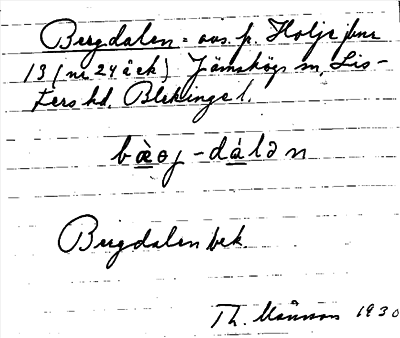 Bergdalen = avs. p. Holje jbnr
13 (nr 24 å ek) Jämshögs sn, Lis-
ters hd, Blekinge l.
bæ̀ƍj-dálən
Bergdalen bek.
Th. Månsson 1930